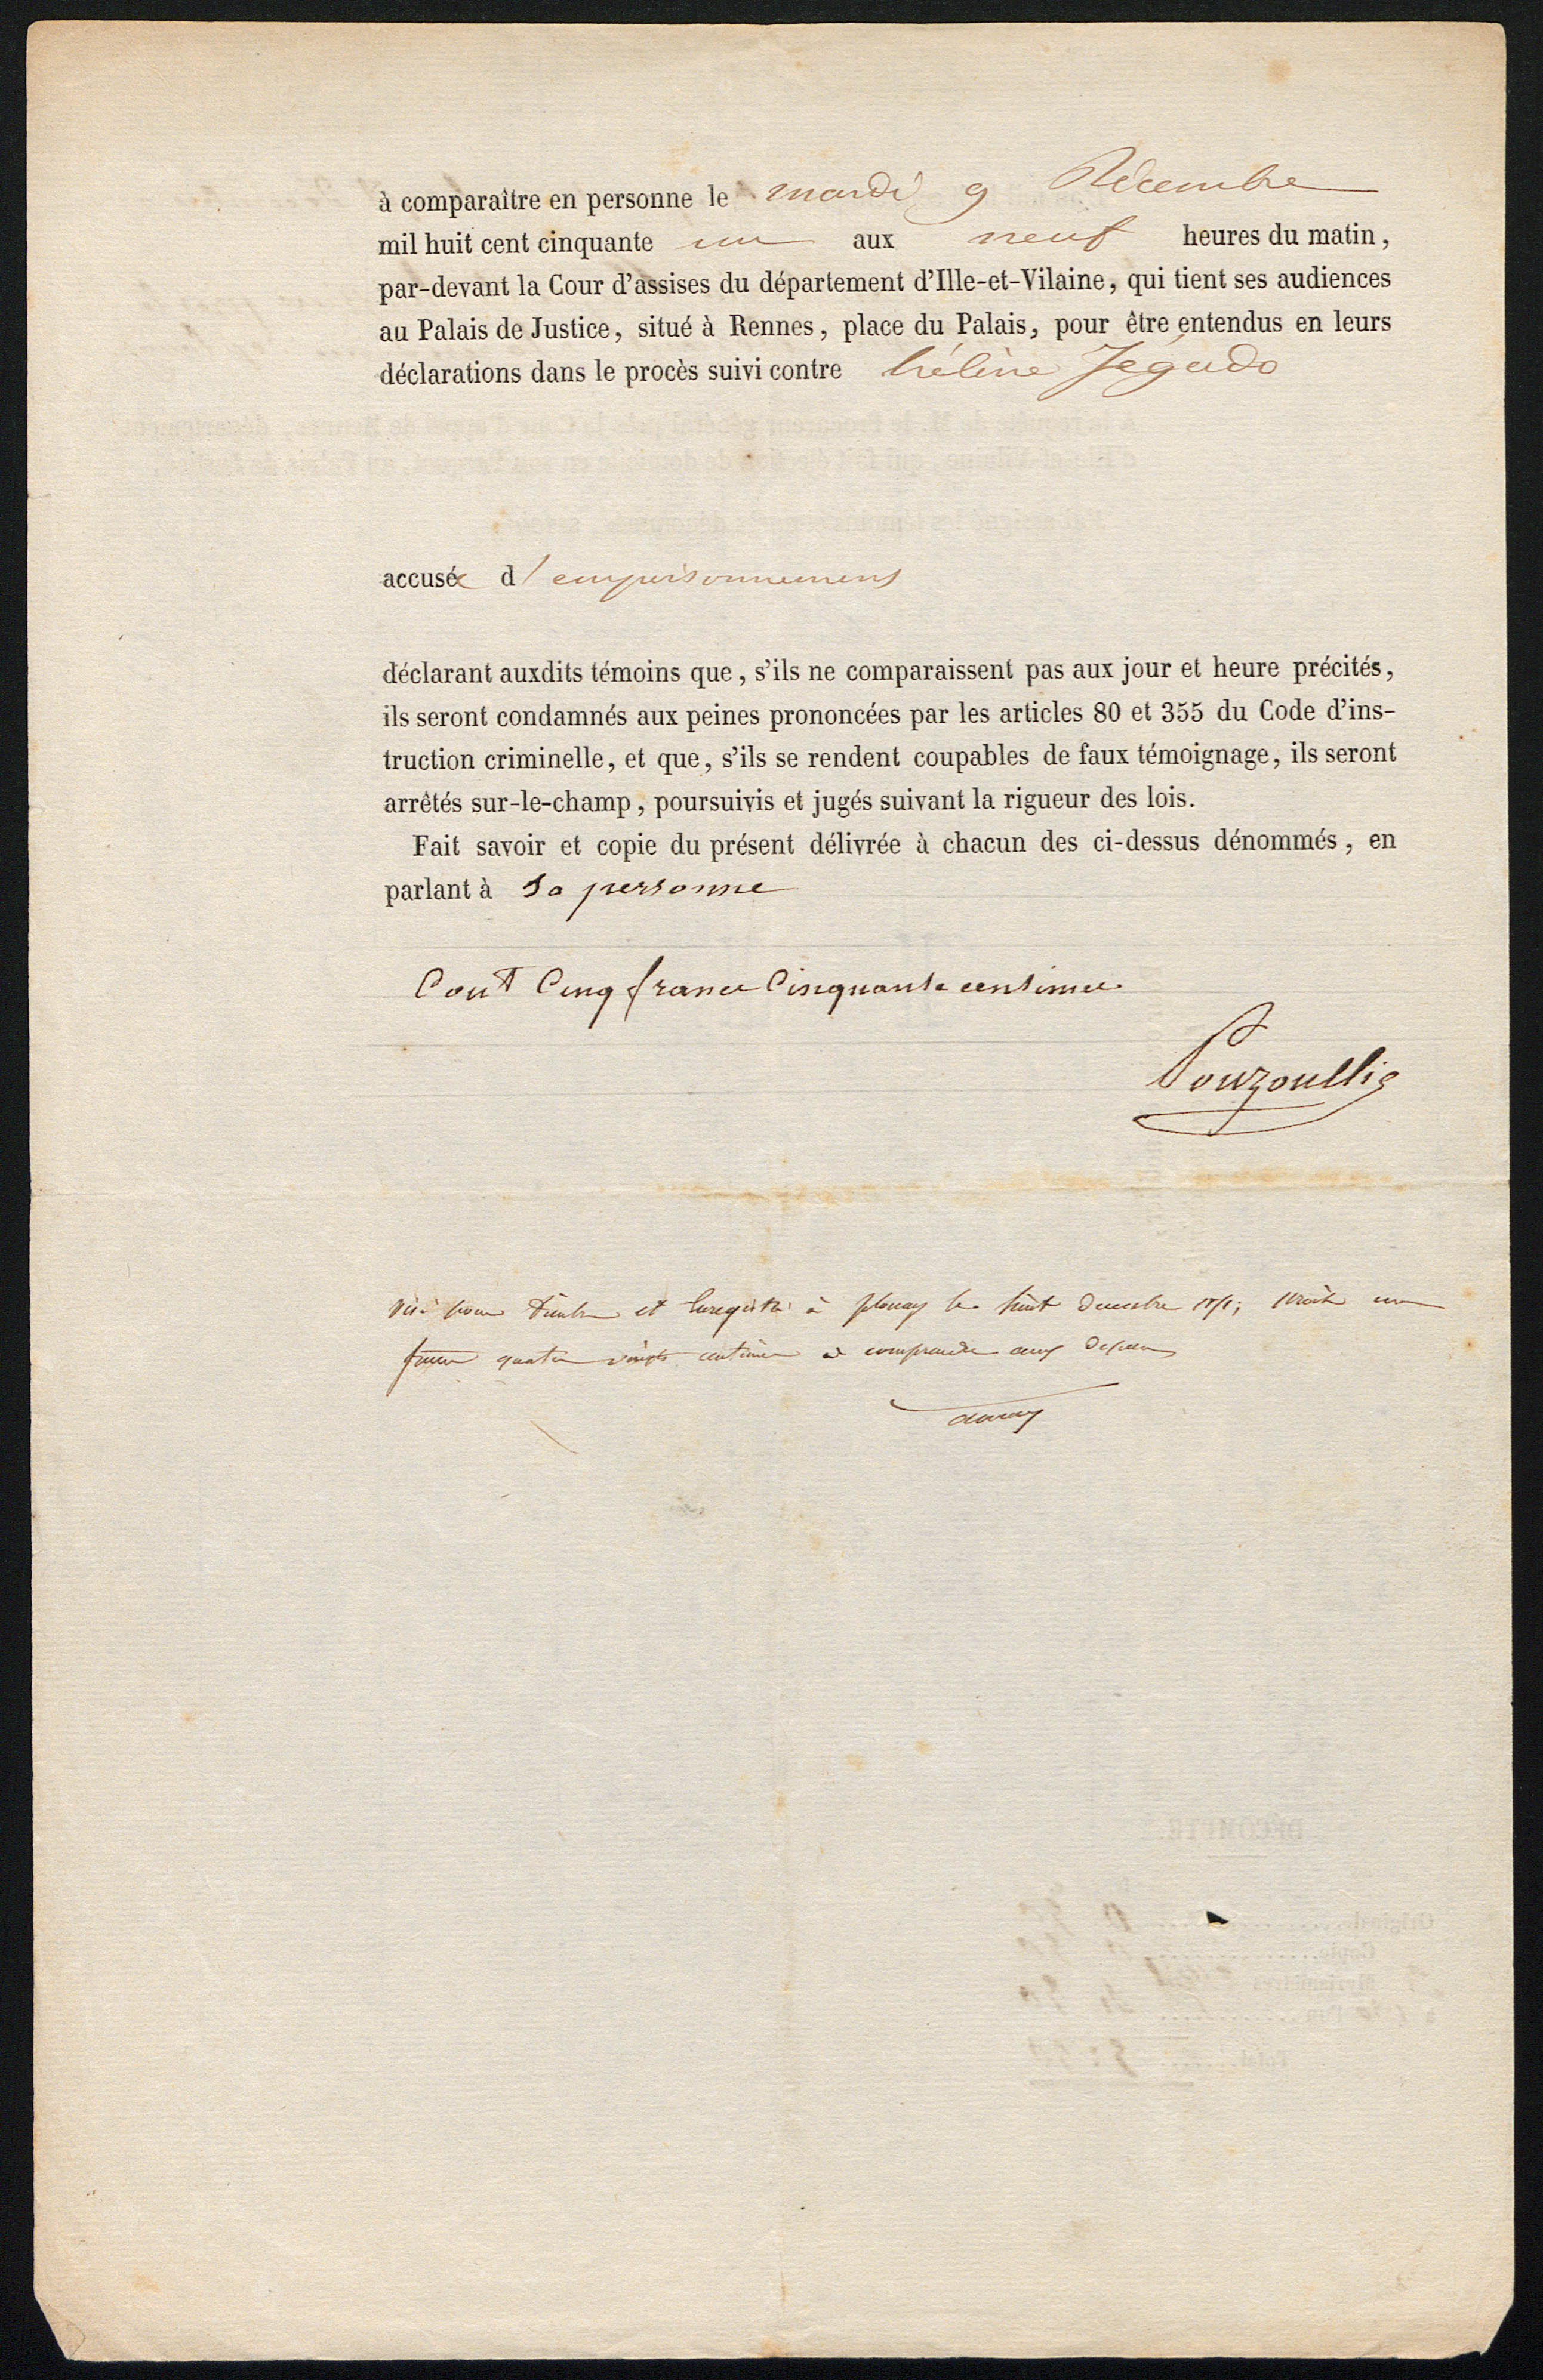 à comparaître en personne le mardi 9 Décembre
mil huit cent cinquante un aux neuf heures du matin,
par-devant la Cour d'assises du département d'Ille-et-Vilaine, qui tient ses audiences
au Palais de Justice, situé à Rennes, place du Palais, pour être entendus en leurs
déclarations dans le procès suivi contre hélène Jégado
accusée d'empoisonnement
déclarant auxdits témoins que, s'ils ne comparaissent pas aux jour et heure précités,
ils seront condamnés aux peines prononcées par les articles 80 et 355 du Code d'ins-
truction criminelle, et que, s'ils se rendent coupables de faux témoignage, ils seront
arrêtés sur-le-champ, poursuivis et jugés suivant la rigueur des lois.
Fait savoir et copie du présent délivrée à chacun des ci-dessus dénommés, en
parlant à sa personne
Cout Cinq francs Cinquante centimes
Pouzoullic
Visé pour Timbre et Enregistré à plouay le huit Decembre 1851; Droit un
franc quatre vingts centimes à comprendre aux depens